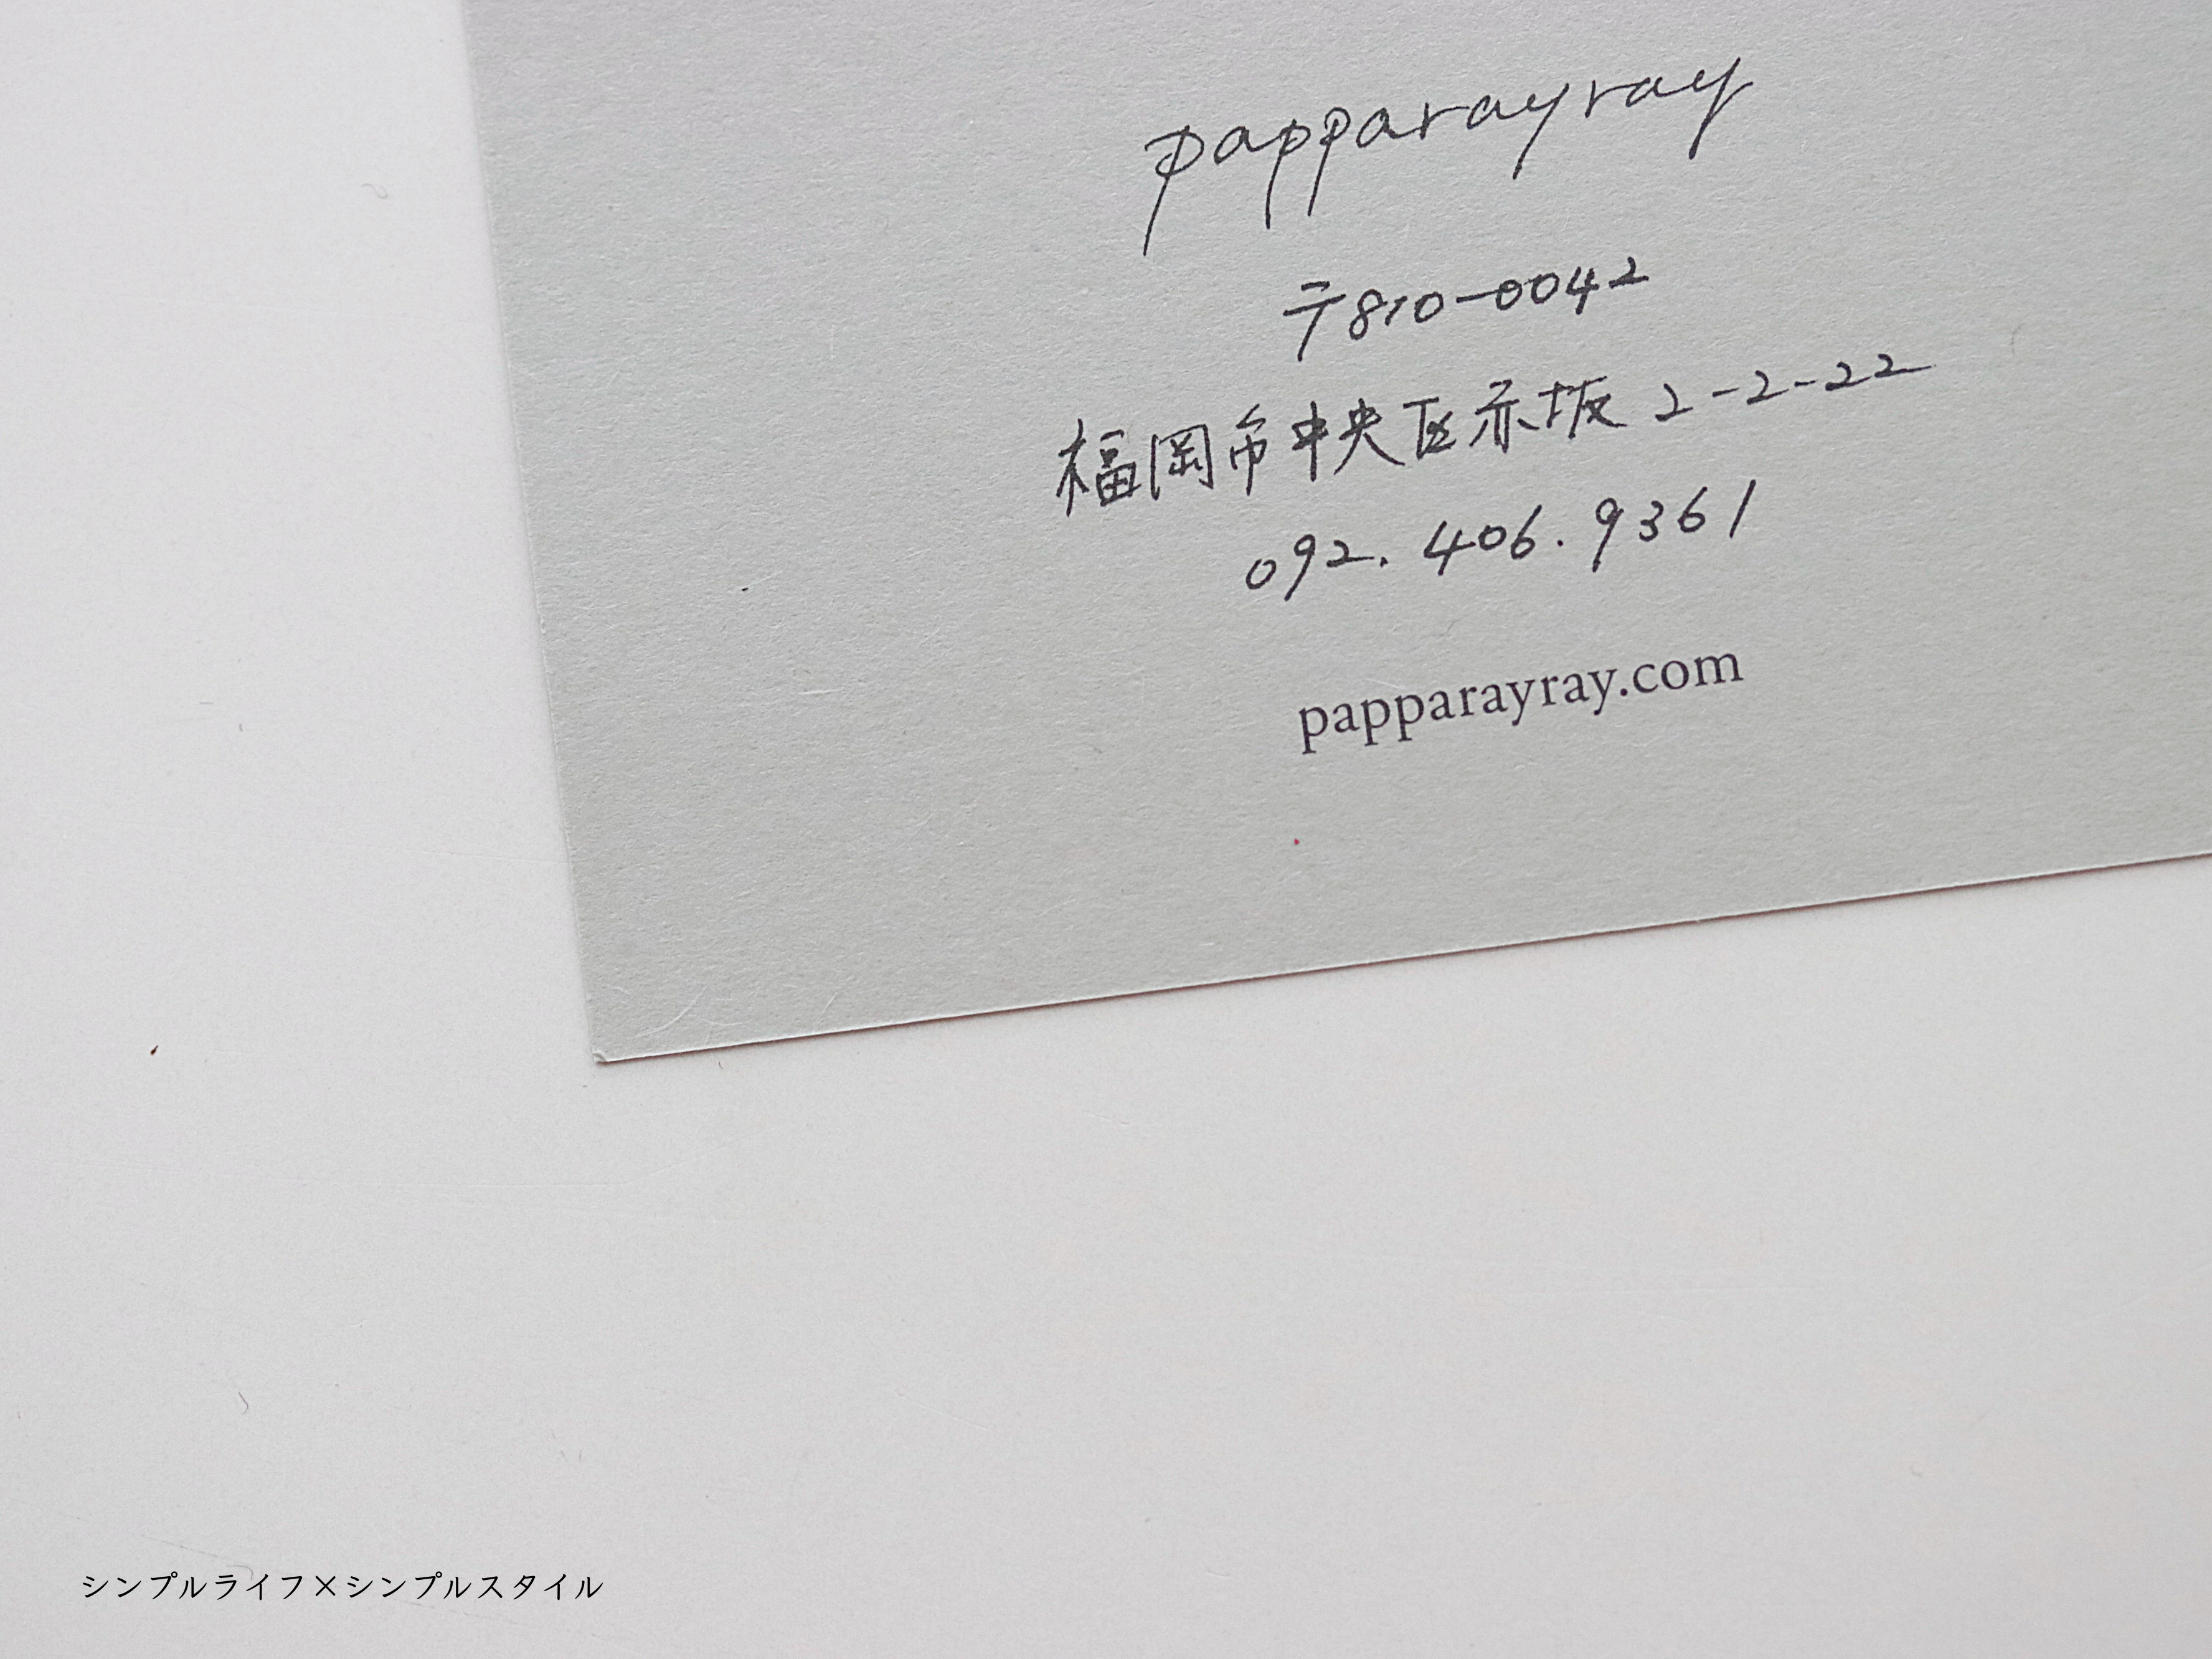 papparayray
〒810-0042
福岡市中央区赤坂2-2-22
092.406.9361
papparayray.com
シンプルライフ×シンプルスタイル